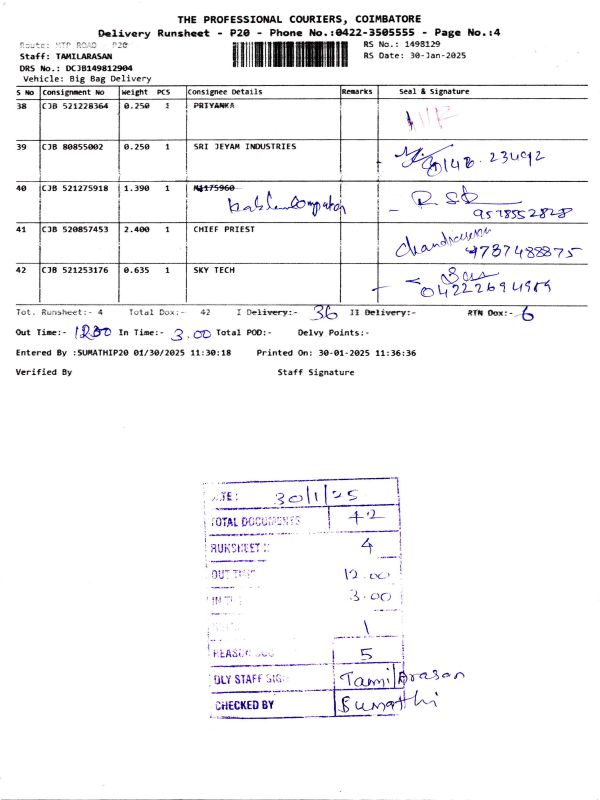 THE PROFESSIONAL COURIERS, COIMBATORE
Delivery Runsheet - P20 - Phone No.:0422-3505555 - Page No.:4
Route: MTP ROAD - P20
RS No.: 1498129
Staff: TAMILARASAN
RS Date: 30-Jan-2025
DRS No.: DCJB149812904
Vehicle: Big Bag Delivery
S No Consignment No Weight PCS Consignee Details Remarks Seal & Signature
38 CJB 521228364 0.250 1 PRIYANKA
39 CJB 80855002 0.250 1 SRI JEYAM INDUSTRIES
40 CJB 521275918 1.390 1
9578552828
41 CJB 520857453 2.400 1 CHIEF PRIEST
9787488875
42 CJB 521253176 0.635 1 SKY TECH
Tot. Runsheet:- 4 Total Dox:- 42 I Delivery:- 36 II Delivery:- RTN Dox:- 6
Out Time:- 12.00 In Time:- 3.00 Total POD:- Delvy Points:-
Entered By :SUMATHIP20 01/30/2025 11:30:18 Printed On: 30-01-2025 11:36:36
Verified By Staff Signature
30/1/25
TOTAL DOCUMENTS 42
4
OUT 12.00
IN 3.00
1
REASON 5
DLY STAFF SIGN Tamil Arasan
CHECKED BY Sumathi